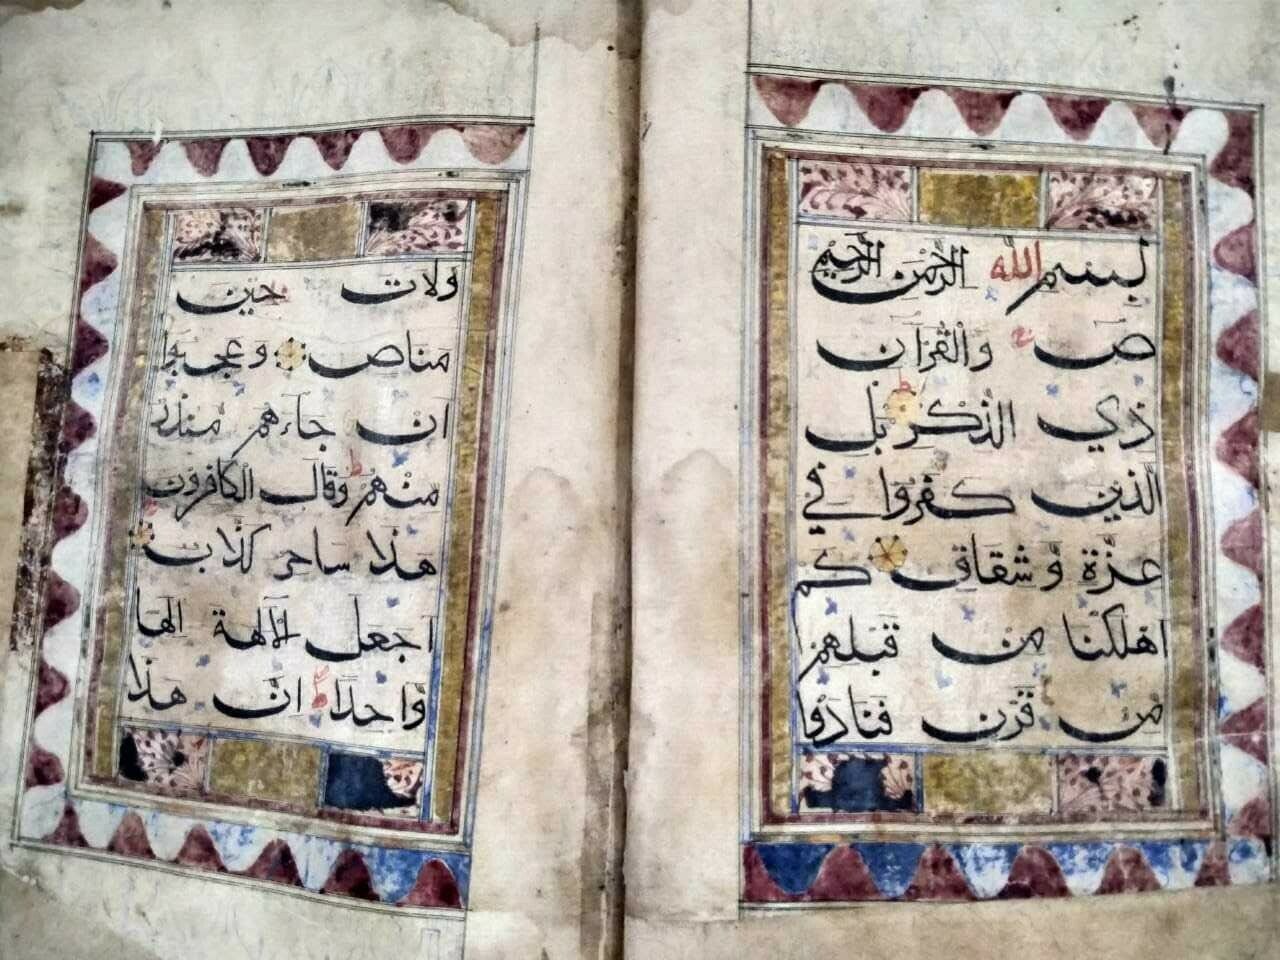 بسم الله الرحمن الرحيم
ص والقرآن
ذي الذكر بل
الذين كفروا في
عزة وشقاق كم
اهلكنا من قبلهم
من قرن فنادوا
ولات حين
مناص وعجبوا
ان جاءهم منذر
منهم وقال الكافرون
هذا ساحر كذاب
اجعل الالهة الها
واحدا ان هذا